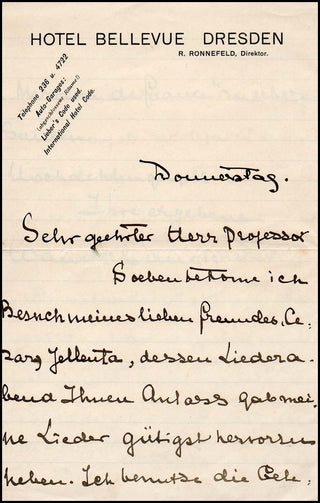 HOTEL BELLEVUE DRESDEN
R. RONNEFELD, Direktor.
Telephone 236 u. 4722
Auto-Garages:
(abgeschlossene Räume!)
Lieber's Code used.
International Hotel Code.
Donnerstag.
Sehr geehrter Herr Professor
Soeben bekome ich
Besuch meines lieben Freundes, Ce-
zary Jellenta, dessen Liedera-
bend Ihnen Anlass gab mei-
ne Lieder gütigst hervorzu
heben. Ich benutze die Gele-